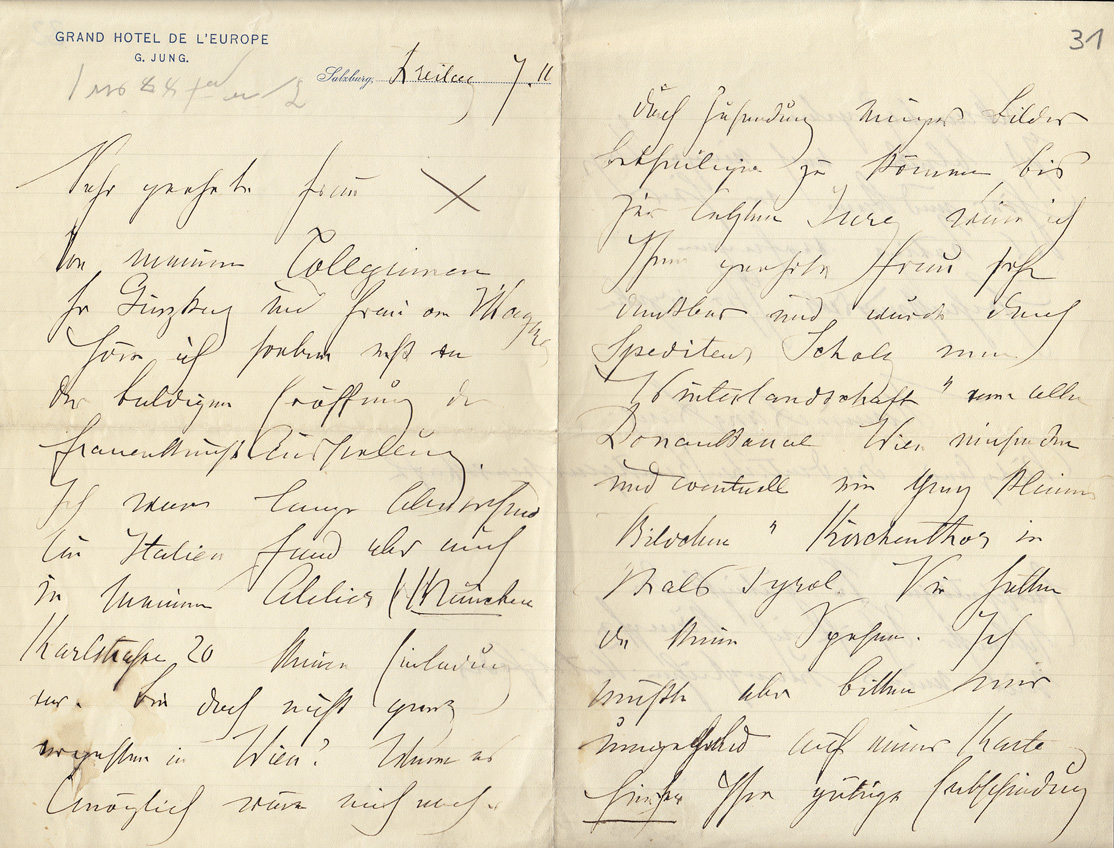 GRAND HOTEL DE L'EUROPE
G. JUNG.
Salzburg, Freitag 7. 11
Sehr geehrte Frau
Von meinen Colleginnen
Fr Ginzkey und Frau
höre ich soeben erst von
der baldigen Eröffnung der
Frauenkunst Ausstellung.
Ich war lange abwesend
in Italien fand aber auch
in meinem Atelier München
Karlstraße 20 keine Einladung
vor. Bin doch nicht ganz
vergessen in Wien? Wenn es
möglich wäre mich noch
31
durch Zusendung einiger Bilder
betheiligen zu können bis
zur letzten Jury wäre ich
Ihnen geehrte Frau sehr
dankbar und würde durch
Spediteur Scholz meine
Winterlandschaft "vom alten
Donaukanal Wien einsenden
und eventuell ein ganz kleines
Bildchen " Kirchenthor in
Kals Tyrol. Sie hätten
da keine Spesen. Ich
müßte aber bitten mir
umgehend auf einer Karte
hierher Ihre gütige Entscheidung